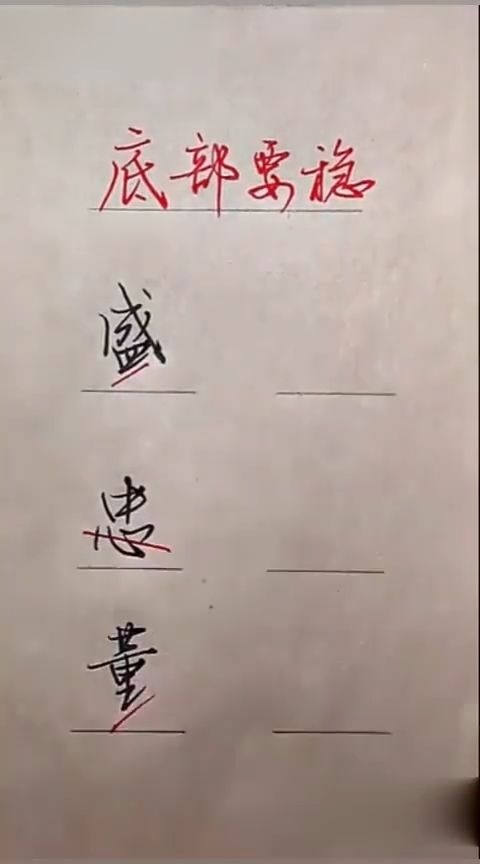 底部要稳
盛
忠
董